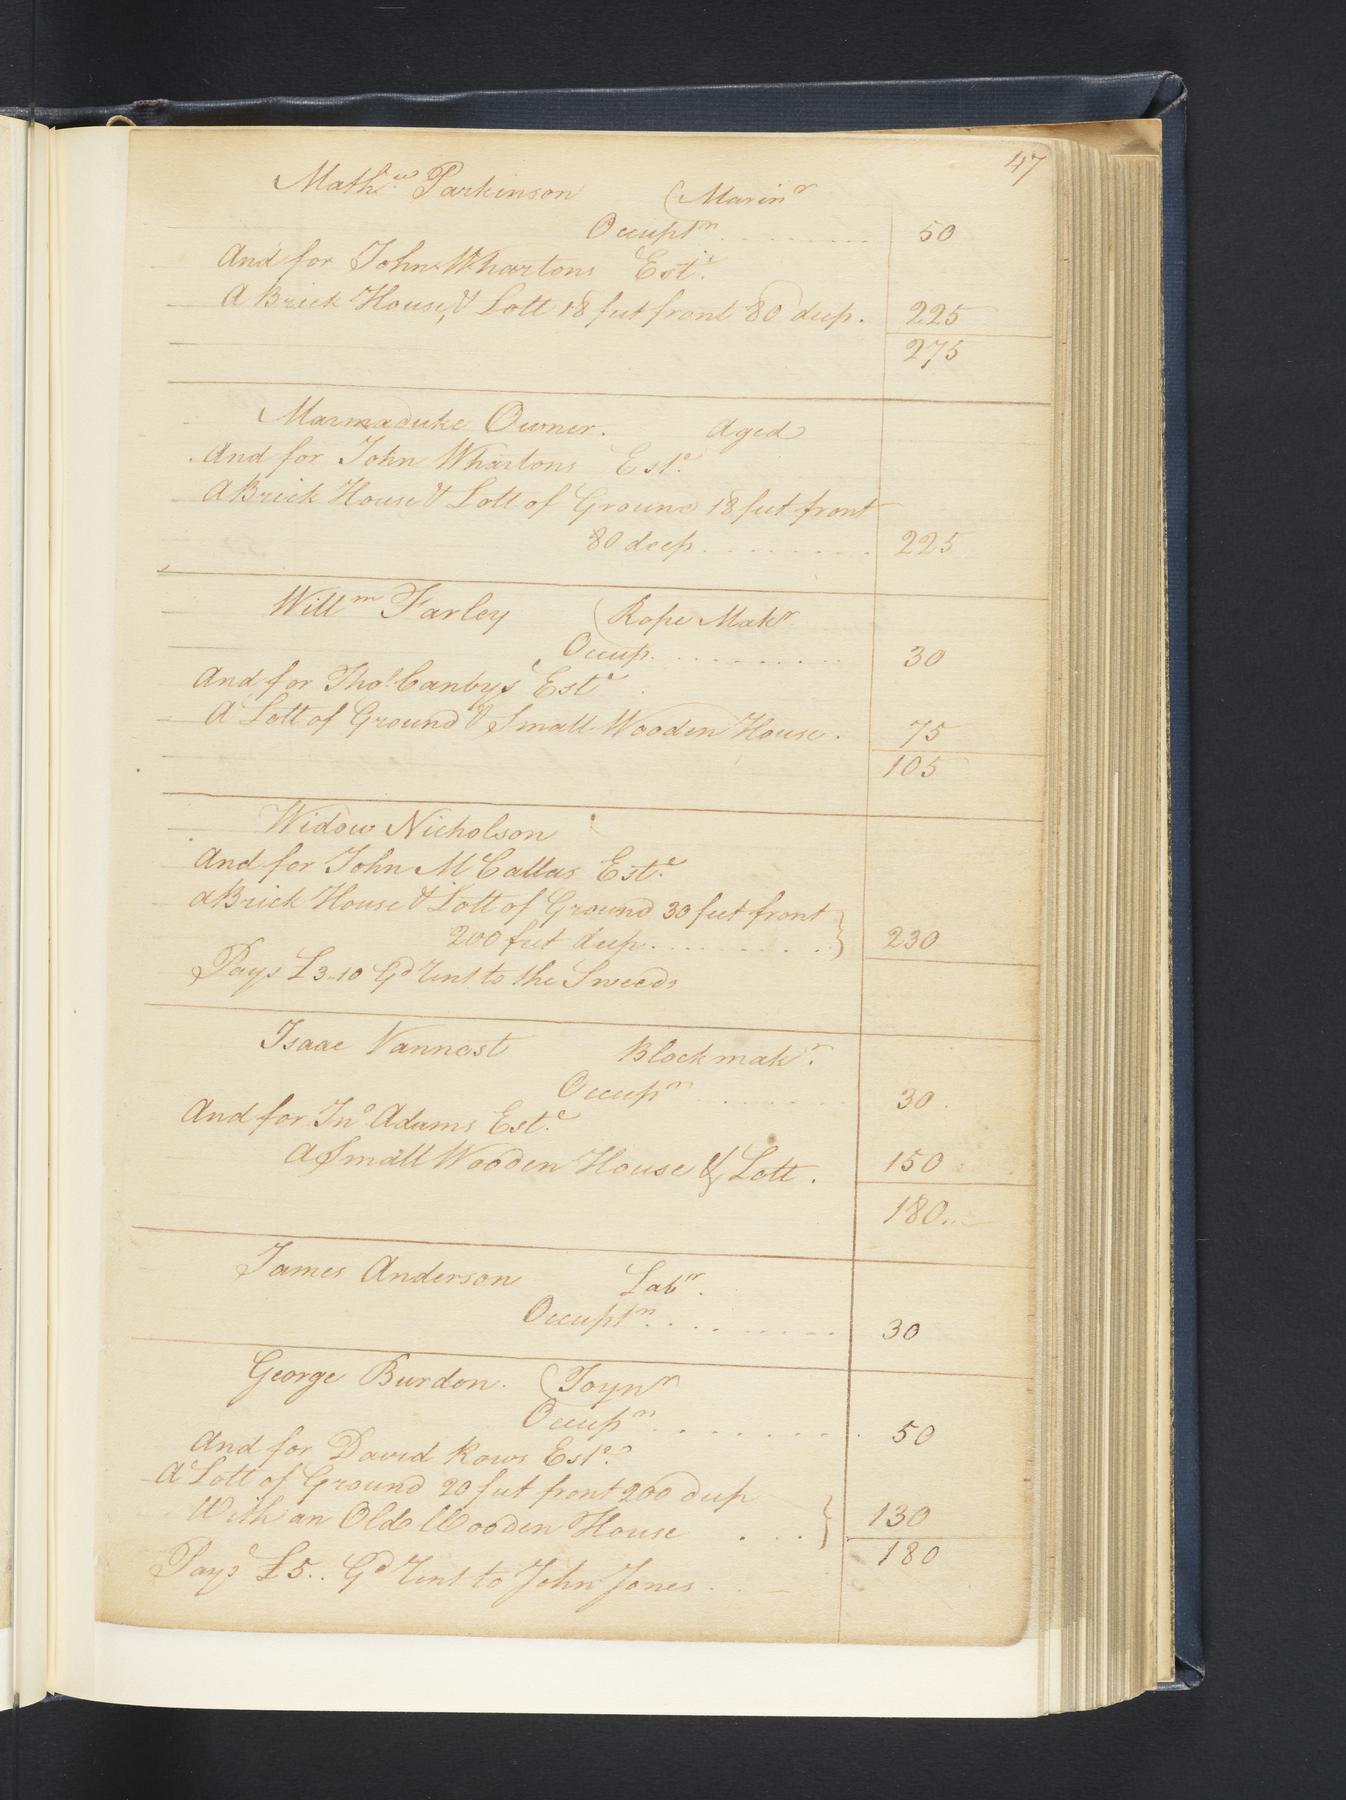 47
Mathw Parkinson (Marinr
Occuptn ......... 50
And for John Whartons Este
A Brick House & Lott 18 feet front 80 deep. 225
275
Marmaduke Owner. Aged
And for John Whartons Este
A Brick House & Lott of Ground 18 feet front
80 deep ......... 225
Willm Farley (Rope Makr
Occup. ......... 30
And for Thos Canbys Este
A Lott of Ground & Small Wooden House. 75
105
Widow Nicholson
And for John McCallas Este
a Brick House & Lott of Ground 30 feet front
200 feet deep. ......... } 230
Pays £3..10 Gd Rent to the Sweeds
Isaac Vannost Blockmakr.
Occupn ....... 30.
And for Jno Adams Este
A Small Wooden House & Lott. 150
180..
James Anderson Labr.
Occuptn. ........ 30
George Burdon. (Joynr
Occupn ......... 50
And for David Rows Este
A Lott of Ground 20 feet front 200 deep
With an Old Wooden House ... } 130
180
Pays £5.. Gd Rent to John Jones.